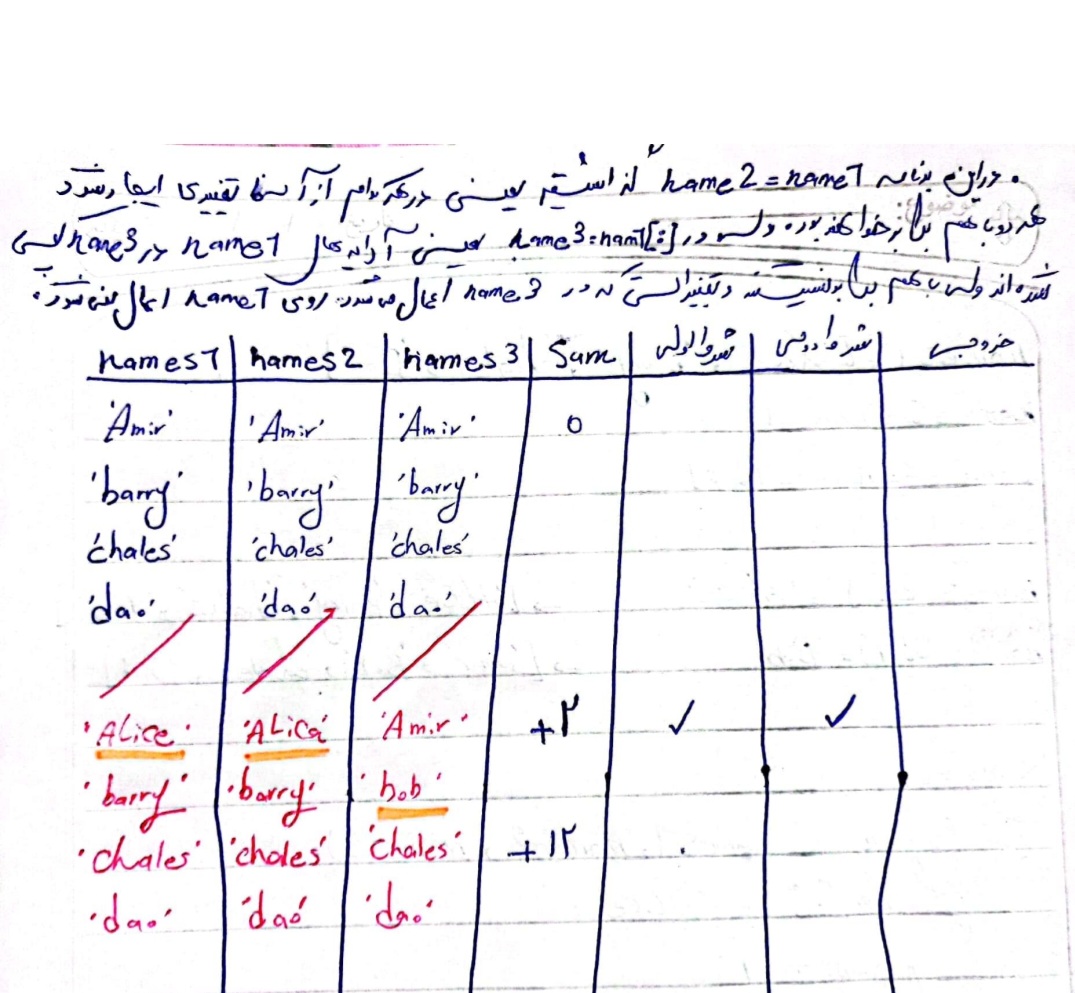 . در این برنامه name2=name1 گذاشتیم یعنی در هرکدام از آن‌ها تغییری ایجاد شود
هردو باهم برابر خواهند بود ولی در name3=nam1[:] یعنی آرایه های name1 در name3 کپی
شده‌اند ولی باهم برابر نیستند و تغییراتی که در name3 اعمال می‌شود روی name1 اعمال نمی‌شود.
names1 names2 names3 Sum شرط اولی شرط دومی خروجی
'Amir' 'Amir' 'Amir' 0
'barry' 'barry' 'barry'
'chales' 'chales' 'chales'
'dao' 'dao' 'dao'
'ALice' 'ALica' 'Amir' +۲ ✓ ✓
'barry' 'barry' 'bob'
'chales' 'chales' 'chales' +۱۲
'dao' 'dao' 'dao'